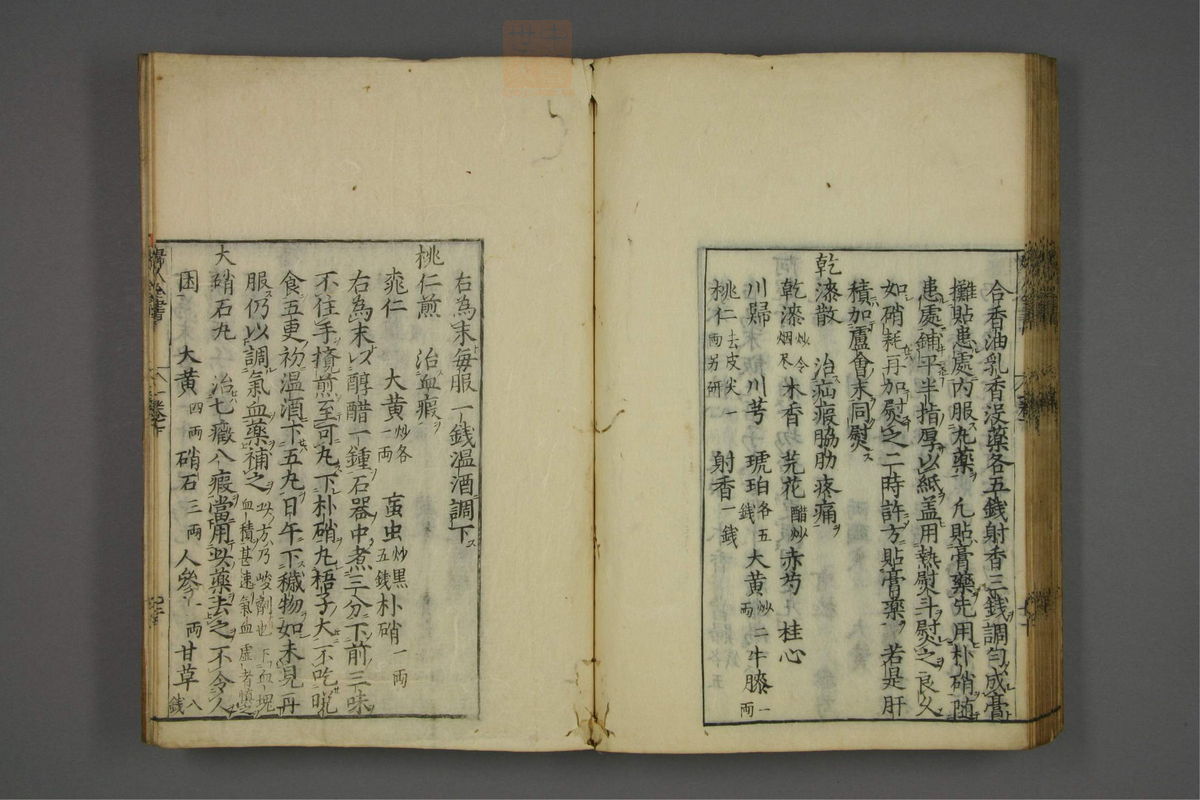 合香油乳香沒藥各五錢射香三錢調勻成膏
攤貼患處內服丸藥 凡貼膏藥先用朴硝随
患處鋪平半指厚以紙盖用熱熨斗熨之良久
如硝耗再加熨之二時許方貼膏藥 若是肝
積加蘆會末同熨
乾漆散 治疝瘕脇肋疼痛
乾漆炒令烟尽 木香 芫花醋炒 赤芍 桂心
川歸 川芎 琥珀各五錢 大黄炒二両 牛膝一両
桃仁去皮尖一両另研 射香一錢
右為末每服一錢温酒調下
桃仁煎 治血瘕
桃仁 大黄炒各一両 虻虫炒黒五錢 朴硝一両
右為末以醇醋一鍾石器中煮三分下前三味
不住手攪煎至可丸下朴硝丸梧子大不吃晩
食五更初温酒下五丸日午下穢物如未見再
服仍以調氣血藥補之此方乃峻劑也下血塊血積甚速氣血虚者慎之
大硝石丸 治七癥八瘕當用此藥去之不令人
困 大黄四両 硝石三両 人參一両 甘草八錢